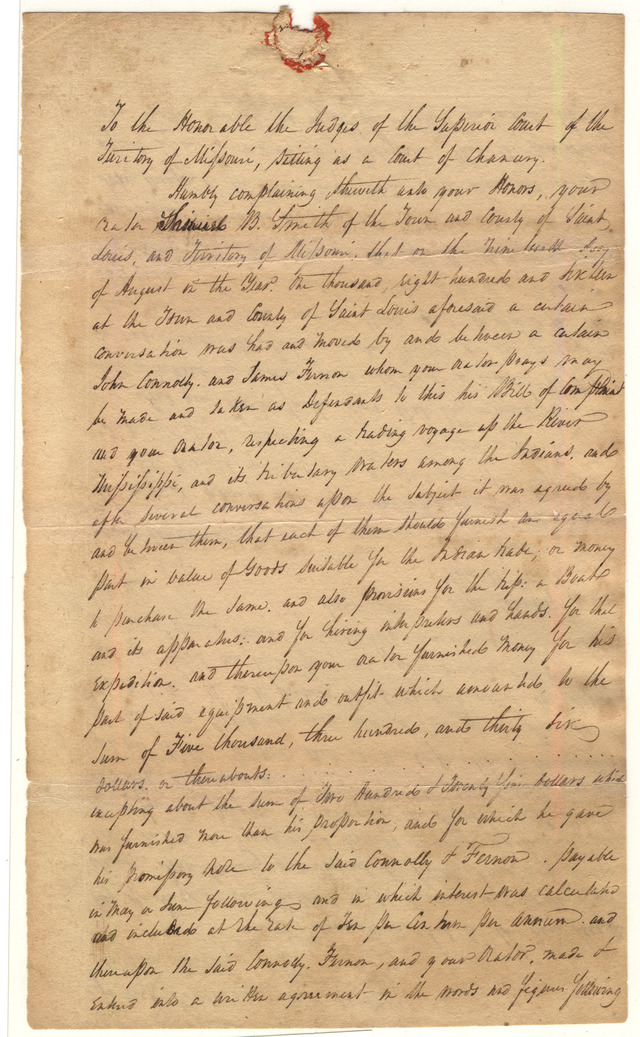 To the Honorable the Judges of the Superior Court of the
Territory of Missouri, sitting as a Court of Chancery.
Humbly complaining sheweth unto your Honors, your
orator B. Smith of the Town and County of Saint
Louis, and Territory of Missouri, that on the nineteenth day
of August in the Year One thousand, eight hundred and sixteen
at the Town and County of Saint Louis aforesaid a certain
conversation was had and moved by and between a certain
John Connolly and James Fernon whom your orator prays may
be made and taken as Defendants to this his Bill of Complaint
and your Orator, respecting a trading voyage up the River
Mississippi, and its tributary waters among the Indians, and
after several conversations upon the subject it was agreed by
and between them, that each of them should furnish an equal
part in value of Goods suitable for the Indian trade, or money
to purchase the same, and also provisions for the trip: a Boat
and its apparatus: and for hiring interpreters and hands for that
Expedition, and thereupon your orator furnished money for his
part of said equipment and outfit which amounted to the
sum of Five thousand, three hundred, and thirty six
dollars or thereabouts:
excepting about the sum of Two Hundred & Twenty dollars which
was furnished more than his proportion, and for which he gave
his promissory note to the said Connolly & Fernon, payable
in May or June following and in which interest was calculated
and included at the rate of Ten per Centum per Annum and
thereupon the said Connolly, Fernon, and your Orator, made &
entered into a written agreement in the words and figures following